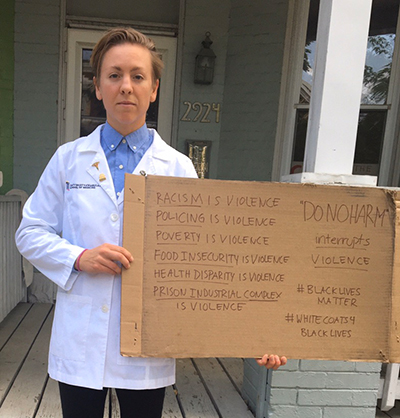 2924
RACISM IS VIOLENCE
POLICING IS VIOLENCE
POVERTY IS VIOLENCE
FOOD INSECURITY IS VIOLENCE
HEALTH DISPARITY IS VIOLENCE
PRISON INDUSTRIAL COMPLEX
IS VIOLENCE
"DO NO HARM"
interrupts
VIOLENCE
#BLACK LIVES
MATTER
#WHITECOATS4
BLACK LIVES